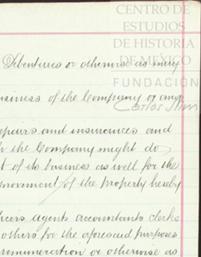 CENTRO DE
ESTUDIOS
DE HISTORIA
DE MÉXICO
Debentures or otherwise as may
FUNDACIÓN
business of the Company or any
Carlos Slim
repairs and insurances and
the Company might do
of its business as well for the
improvement of the Property hereby
agents accountants clerks
others for the aforesaid purposes
remuneration or otherwise as